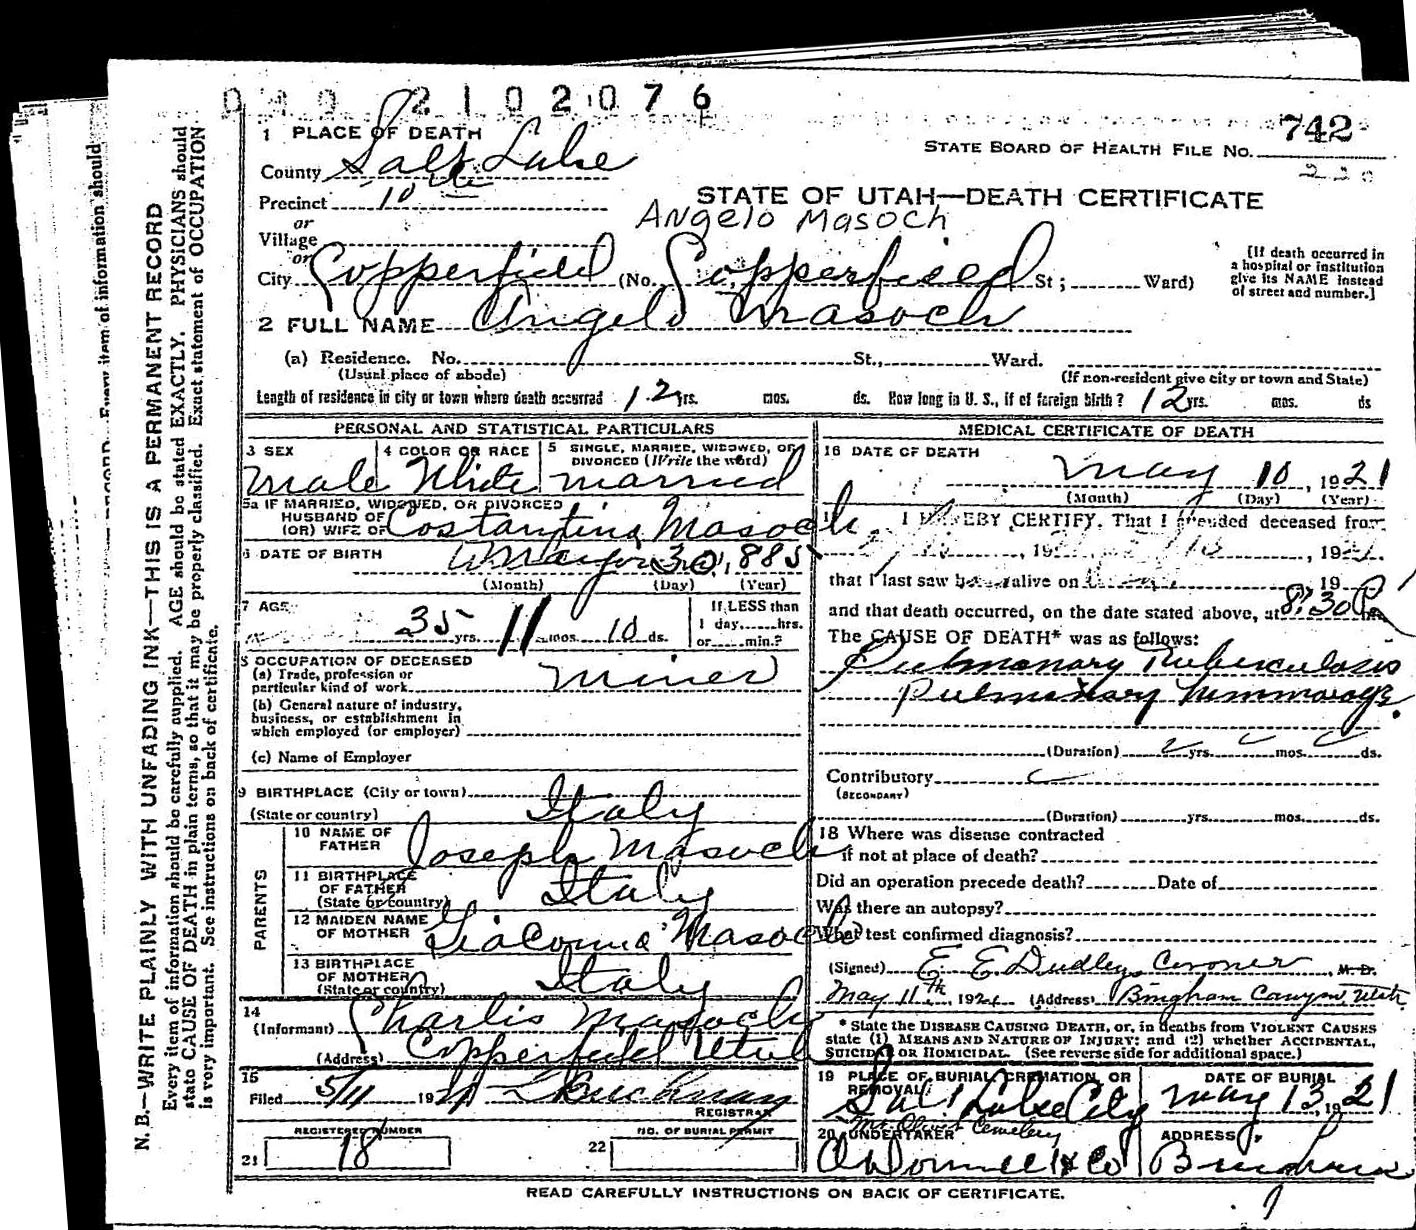 2102076
1 PLACE OF DEATH
742
STATE BOARD OF HEALTH FILE No.
County Salt Lake
Precinct 10
STATE OF UTAH—DEATH CERTIFICATE
or
Village
Angelo Masoch
or
City Copperfield (No. Copperfield St; Ward)
[If death occurred in
a hospital or institution
give its NAME instead
of street and number.]
2 FULL NAME Angelo Masoch
(a) Residence. No. St., Ward.
(Usual place of abode)
(If non-resident give city or town and State)
Length of residence in city or town where death occurred 12 yrs. mos. ds. How long in U. S., if of foreign birth? 12 yrs. mos. ds
PERSONAL AND STATISTICAL PARTICULARS
3 SEX
Male
4 COLOR OR RACE
White
5 SINGLE, MARRIED, WIDOWED, OR
DIVORCED (Write the word)
married
5a IF MARRIED, WIDOWED, OR DIVORCED
HUSBAND OF
(OR) WIFE OF Costantina Masoch
6 DATE OF BIRTH
30, 1885
(Month) (Day) (Year)
7 AGE
35 yrs. 11 mos. 10 ds.
If LESS than
1 day, hrs.
or min.?
8 OCCUPATION OF DECEASED
(a) Trade, profession or
particular kind of work Miner
(b) General nature of industry,
business, or establishment in
which employed (or employer)
(c) Name of Employer
9 BIRTHPLACE (City or town)
(State or country) Italy
PARENTS
10 NAME OF
FATHER Joseph Masoch
11 BIRTHPLACE
OF FATHER
(State or country) Italy
12 MAIDEN NAME
OF MOTHER Giacoma Masoch
13 BIRTHPLACE
OF MOTHER
(State or country) Italy
14
(Informant) Charlis Masoch
(Address) Copperfield Utah
15
Filed 5/11 1921
REGISTRAR
REGISTERED NUMBER
21 18
NO. OF BURIAL PERMIT
22
MEDICAL CERTIFICATE OF DEATH
16 DATE OF DEATH
May 10, 1921
(Month) (Day) (Year)
17 I HEREBY CERTIFY, That I attended deceased from
, 19 , 19
that I last saw h alive on 19
and that death occurred, on the date stated above, at 8:30 P m.
The CAUSE OF DEATH* was as follows:
Pulmonary Tuberculosis
Pulmonary
(Duration) yrs. mos. ds.
Contributory
(SECONDARY)
(Duration) yrs. mos. ds.
18 Where was disease contracted
if not at place of death?
Did an operation precede death? Date of
Was there an autopsy?
What test confirmed diagnosis?
(Signed) E E Dudley, Coroner, M. D.
May 11th, 1921 (Address) Bingham Canyon, Utah
* State the DISEASE CAUSING DEATH, or, in deaths from VIOLENT CAUSES
state (1) MEANS AND NATURE OF INJURY; and (2) whether ACCIDENTAL,
SUICIDAL OR HOMICIDAL. (See reverse side for additional space.)
19 PLACE OF BURIAL, CREMATION, OR
REMOVAL
Salt Lake City
Mt. Olivet Cemetery
DATE OF BURIAL
May 13, 1921
20 UNDERTAKER
O'Donnell & Co
ADDRESS
Bingham
READ CAREFULLY INSTRUCTIONS ON BACK OF CERTIFICATE.
N. B.—WRITE PLAINLY WITH UNFADING INK—THIS IS A PERMANENT RECORD
Every item of information should be carefully supplied. AGE should be stated EXACTLY. PHYSICIANS should
state CAUSE OF DEATH in plain terms, so that it may be properly classified. Exact statement of OCCUPATION
is very important. See instructions on back of certificate.
Every item of information should